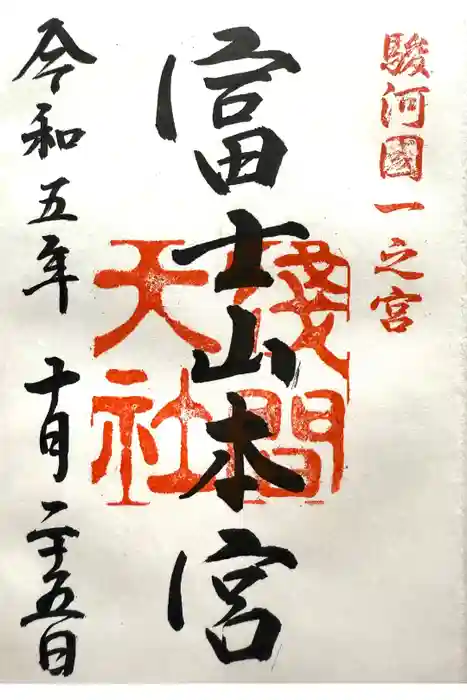 駿河國一之宮
富士山本宮
淺間大社
令和五年 十月二十五日